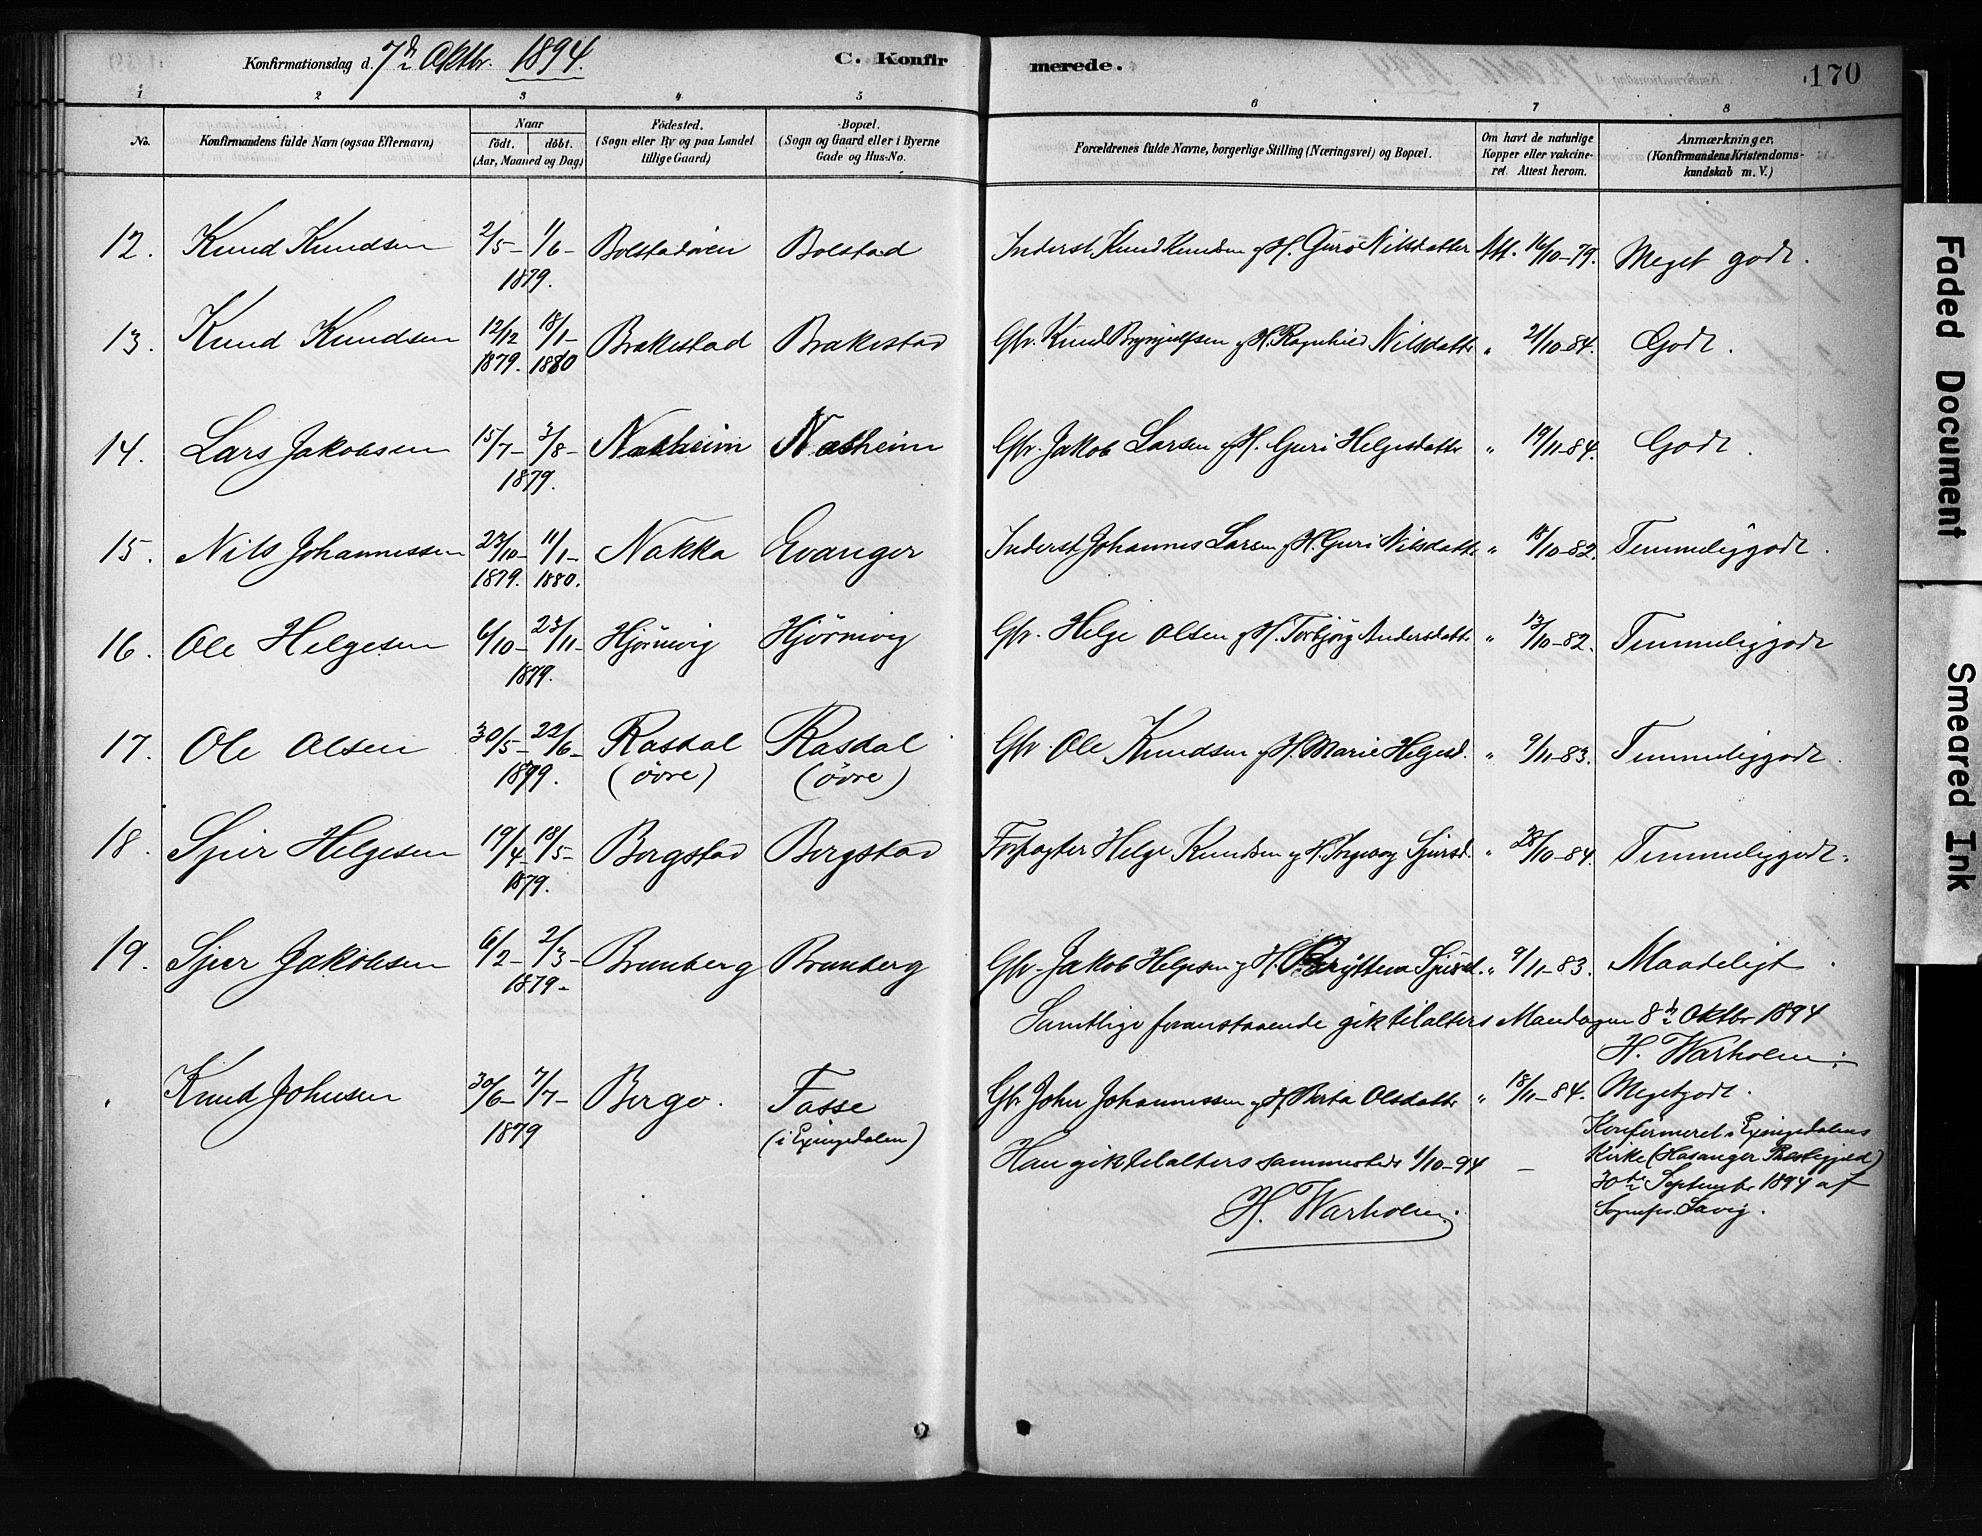 Konfirmationsdag d. 7de Oktbr. 1894.
C. Konfirmerede.
170
1 2 3 4 5 6 7 8
No.
Konfirmandens fulde Navn (ogsaa Efternavn)
Naar
födt. döbt.
(Aar, Maaned og Dag)
Födested.
(Sogn eller By og paa Landet
tillige Gaard)
Bopæl.
(Sogn og Gaard eller i Byerne
Gade og Hus-No.
Forældrenes fulde Navne, borgerlige Stilling (Næringsvei) og Bopæl.
Om havt de naturlige
Kopper eller vakcine-
ret. Attest herom.
Anmærkninger.
(Konfirmandens Kristendoms-
kundskab m. V.)
12. Knud Knudsen 2/5- 1/6- Bolstadøren Bolstad Inderst Knud Knudsen og H. Guro Nilsdatter Att. 16/10-79. Meget godt.
1879.
13. Knud Knudsen 12/12 18/1- Brakestad Brakestad Gbr. Knud Brynjulfsen og H. Ragnhild Nilsdatter " 21/10-84. Godt.
1879. 1880
14. Lars Jakobsen 15/7- 3/8- Næsheim Næsheim Gbr. Jakob Larsen og H. Guri Helgesdatter " 19/11-84. Godt.
1879.
15. Nils Johannessen 23/10- 11/1- Nakka Evanger Inderst Johannes Larsen og H. Guri Nilsdatter " 18/10-82. Temmelig godt.
1879. 1880.
16. Ole Helgesen 6/10- 23/11- Hjørnevig Hjørnevig Gbr. Helge Olsen og H. Torbjörg Andersdatter " 13/10-82. Temmelig godt
1879.
17. Ole Olsen 30/5- 22/6- Rasdal Rasdal Gbr Ole Knudsen og H. Marie Helgesd. " 9/11-83. Temmelig godt.
1879. (övre) (övre)
18. Sjur Helgesen 19/4- 18/5- Bergstad Bergstad Forpagter Helge Knudsen og H. Ingeborg Sjursd. " 28/10-84. Temmelig godt.
1879.
19. Sjur Jakobsen 6/2- 2/3- Brunberg Brunberg Gbr. Jakob Helgesen og H. Sjursd. " 9/11-83. Maadeligt.
1879-
Samtlige foranstaaende gik til alters Mandagen 8de Oktbr 1894
H. Warholm.
" Knud Johnsen 30/6- 7/7- Berge. Fasse Gbr John Johannessen og H. Berta Olsdatter " 18/11-84. Meget godt.
1879 (i Exingedalen)
Konfirmeret i Exingedalens
Kirke (Hosanger Præstegjeld)
30te September 1894 af
Sognepr. Lavig.
Han gik til alters sammesteds 1/10-94 -
H. Warholm.
Faded Document
Smeared Ink